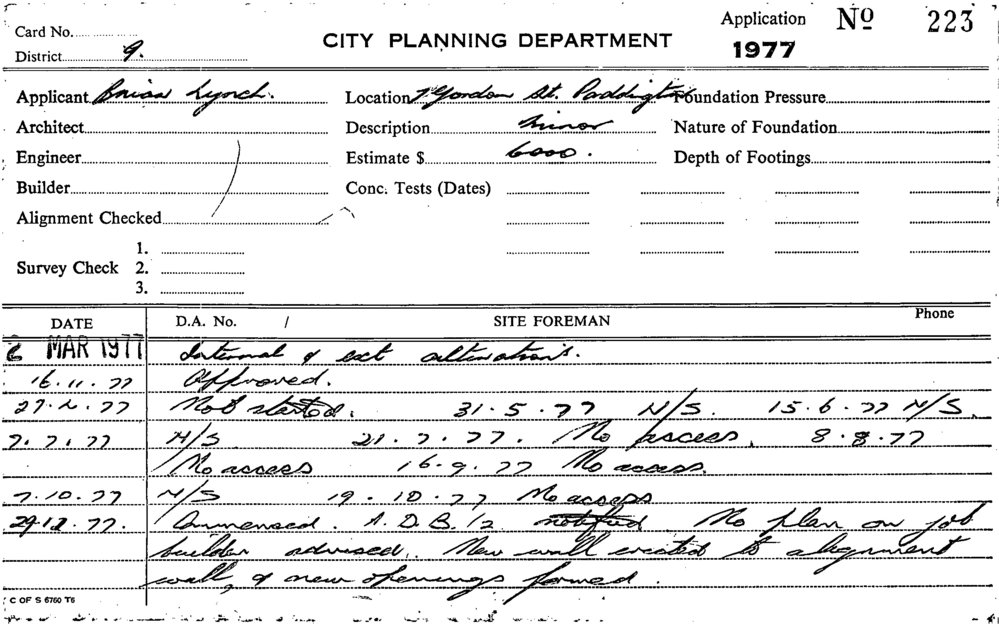 Card No.
District 9.
CITY PLANNING DEPARTMENT
Application Nº 223
1977
Applicant Brian Lynch. Location 7 Gordon St. Paddington Foundation Pressure
Architect Description Minor Nature of Foundation
Engineer Estimate $ 6000. Depth of Footings
Builder Conc. Tests (Dates)
Alignment Checked
Survey Check 1.
2.
3.
DATE D.A. No. / SITE FOREMAN Phone
MAR 1977 Internal & ext alterations.
16.11.77 Approved.
77 Not started. 31.5.77 N/S. 15.6.77 N/S.
7.7.77 N/S 21.7.77. No access. 8.8.77
No access 16.9.77 No access.
7.10.77 N/S 19.10.77 No access
29.12.77. Commenced. A.D.B. 1/2 notified No plan on job
builder advised. New wall erected to alignment
wall, & new openings formed.
C OF S 6760 T6